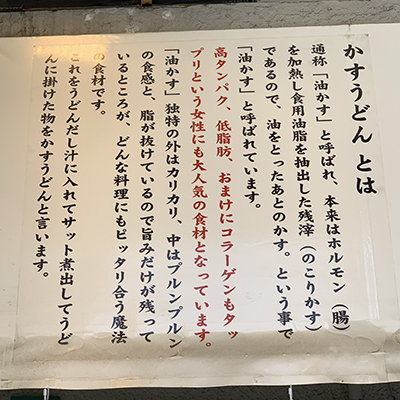 かすうどんとは
通称「油かす」と呼ばれ、本来はホルモン（腸）
を加熱し食用油脂を抽出した残滓（のこりかす）
であるので、油をとったあとのかす。という事で
「油かす」と呼ばれています。
高タンパク、低脂肪、おまけにコラーゲンもタッ
プリという女性にも大人気の食材となっています。
「油かす」独特の外はカリカリ、中はプルンプルン
の食感と、脂が抜けているので旨みだけが残って
いるところが、どんな料理にもピッタリ合う魔法
の食材です。
これをうどんだし汁に入れてサット煮出してうど
んに掛けた物をかすうどんと言います。